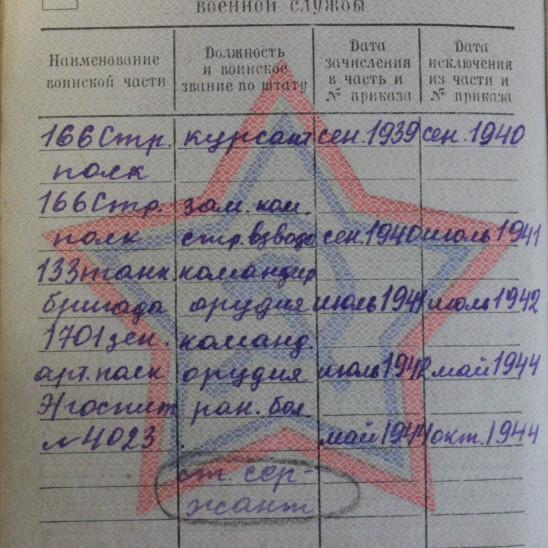 военной службы
Наименование воинской части | Должность и воинское звание по штату | Дата зачисления в часть и № приказа | Дата исключения из части и № приказа
166 Стр. курсант сен. 1939 сен. 1940
полк
166 Стр. зам. ком.
полк стр. взвода сен. 1940 июль 1941
133 танк. командир
бригада орудия июль 1941 июль 1942
1701 зен. команд.
арт. полк орудия июль 1942 май 1944
Эгоспит ран. бол.
№ 4023 май 1944 окт. 1944
ст. сер-
жант